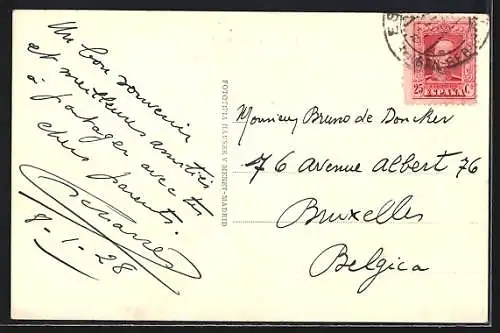 Un bon souvenir
et meilleures amitiés
à partager avec tes
chers parents.
8-1-28
FOTOTIPIA HAUSER Y MENET.-MADRID
Monsieur Bruno de Doncker
76 Avenue Albert 76
Bruxelles
Belgica
25 Cs
ESPAÑA